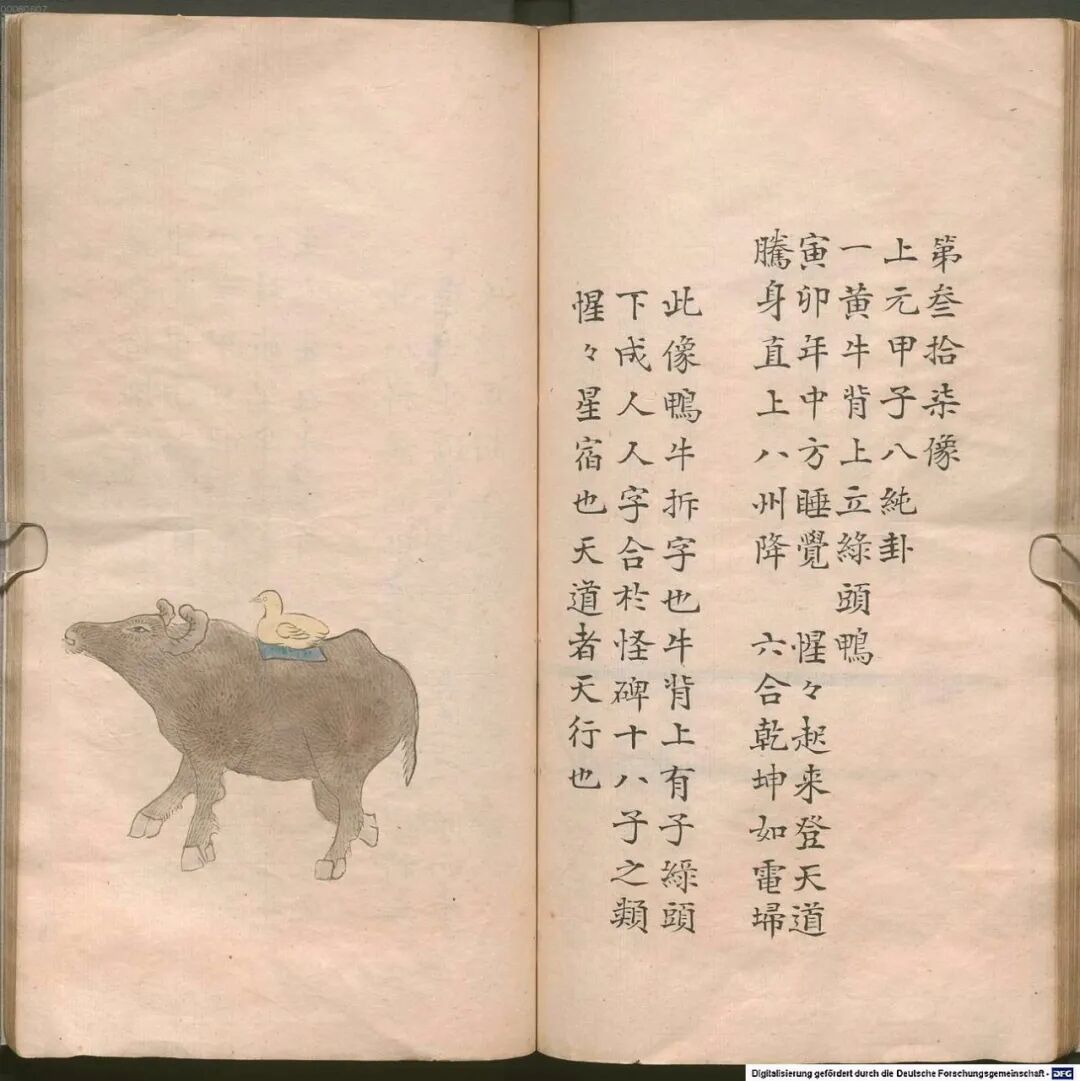 第叁拾柒像
上元甲子八純卦
一黃牛背上立綠頭鴨
寅卯年中方睡覺 惺々起来登天道
騰身直上八州降 六合乾坤如電埽
此像鴨牛拆字也牛背上有子綠頭
下成人人字合於怪碑十八子之類
惺々星宿也天道者天行也
00060607
Digitalisierung gefördert durch die Deutsche Forschungsgemeinschaft - DFG